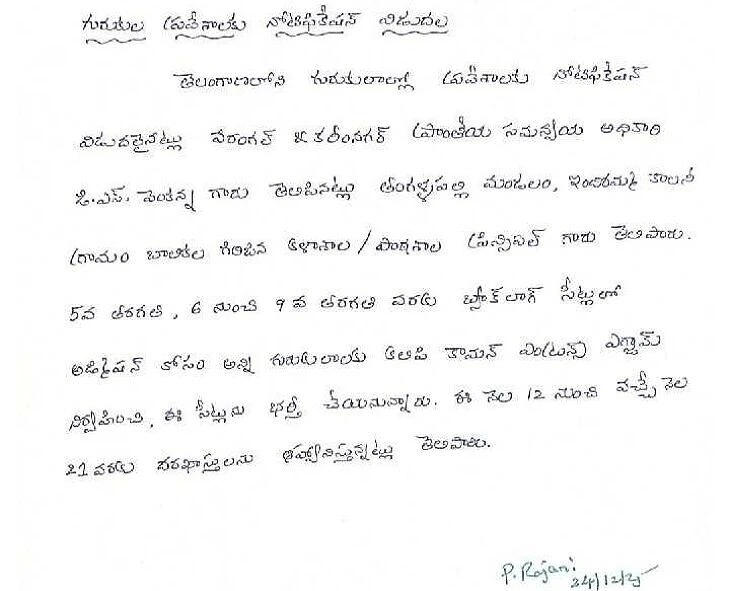 గురుకుల ప్రవేశాలకు నోటిఫికేషన్ విడుదల
తెలంగాణలోని గురుకులాల్లో ప్రవేశాలకు నోటిఫికేషన్
విడుదలైనట్లు వరంగల్ & కరీంనగర్ ప్రాంతీయ సమన్వయ అధికారి
డి.ఎస్. వెంకన్న గారు తెలిపినట్లు తంగళ్ళపల్లి మండలం, ఇందిరమ్మ కాలనీ
గ్రామం బాలికల గిరిజన కళాశాల / పాఠశాల ప్రిన్సిపల్ గారు తెలిపారు.
5వ తరగతి, 6 నుంచి 9 వ తరగతి వరకు బ్యాక్‌లాగ్ సీట్లలో
అడ్మిషన్ కోసం అన్ని గురుకులాలకు కలిపి కామన్ ఎంట్రన్స్ ఎగ్జామ్
నిర్వహించి, ఈ సీట్లను భర్తీ చేయనున్నారు. ఈ నెల 12 నుంచి వచ్చే నెల
21 వరకు దరఖాస్తులను ఆహ్వానిస్తున్నట్లు తెలిపారు.
P. Rajani
24/12/25